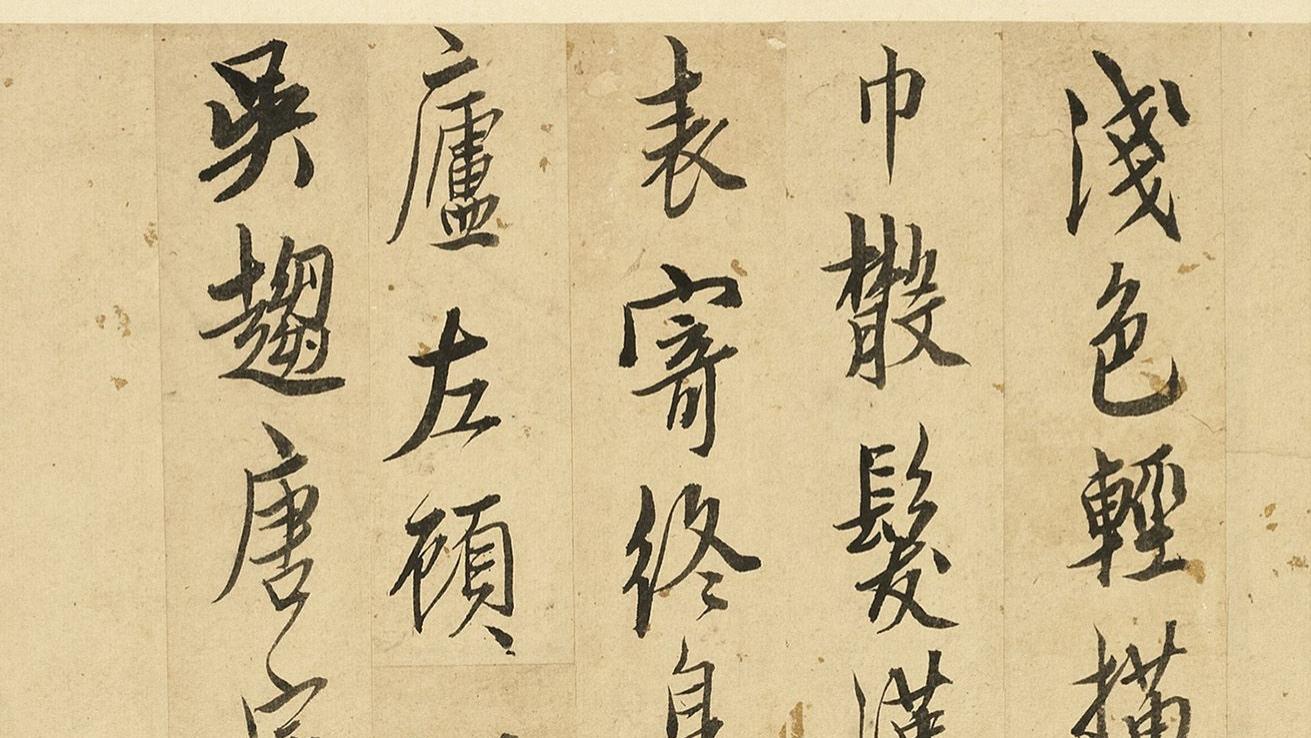 淺色輕描
巾散髮漢
表寄終身
廬左顧
吳趨唐